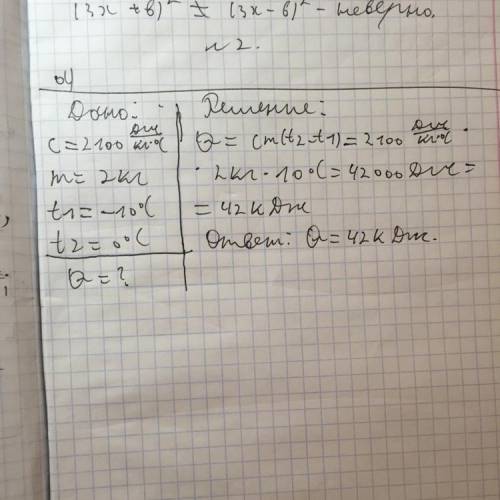 (3x + в)² ≠ (3x - в)² - неверно.
n 2.
Дано:
c = 2100 Дж/кг·°C
m = 2 кг
t1 = -10°C
t2 = 0°C
Q = ?
Решение:
Q = cm(t2-t1) = 2100 Дж/кг·°C ·
· 2 кг · 10°C = 42000 Дж =
= 42 к Дж
Ответ: Q = 42 к Дж.